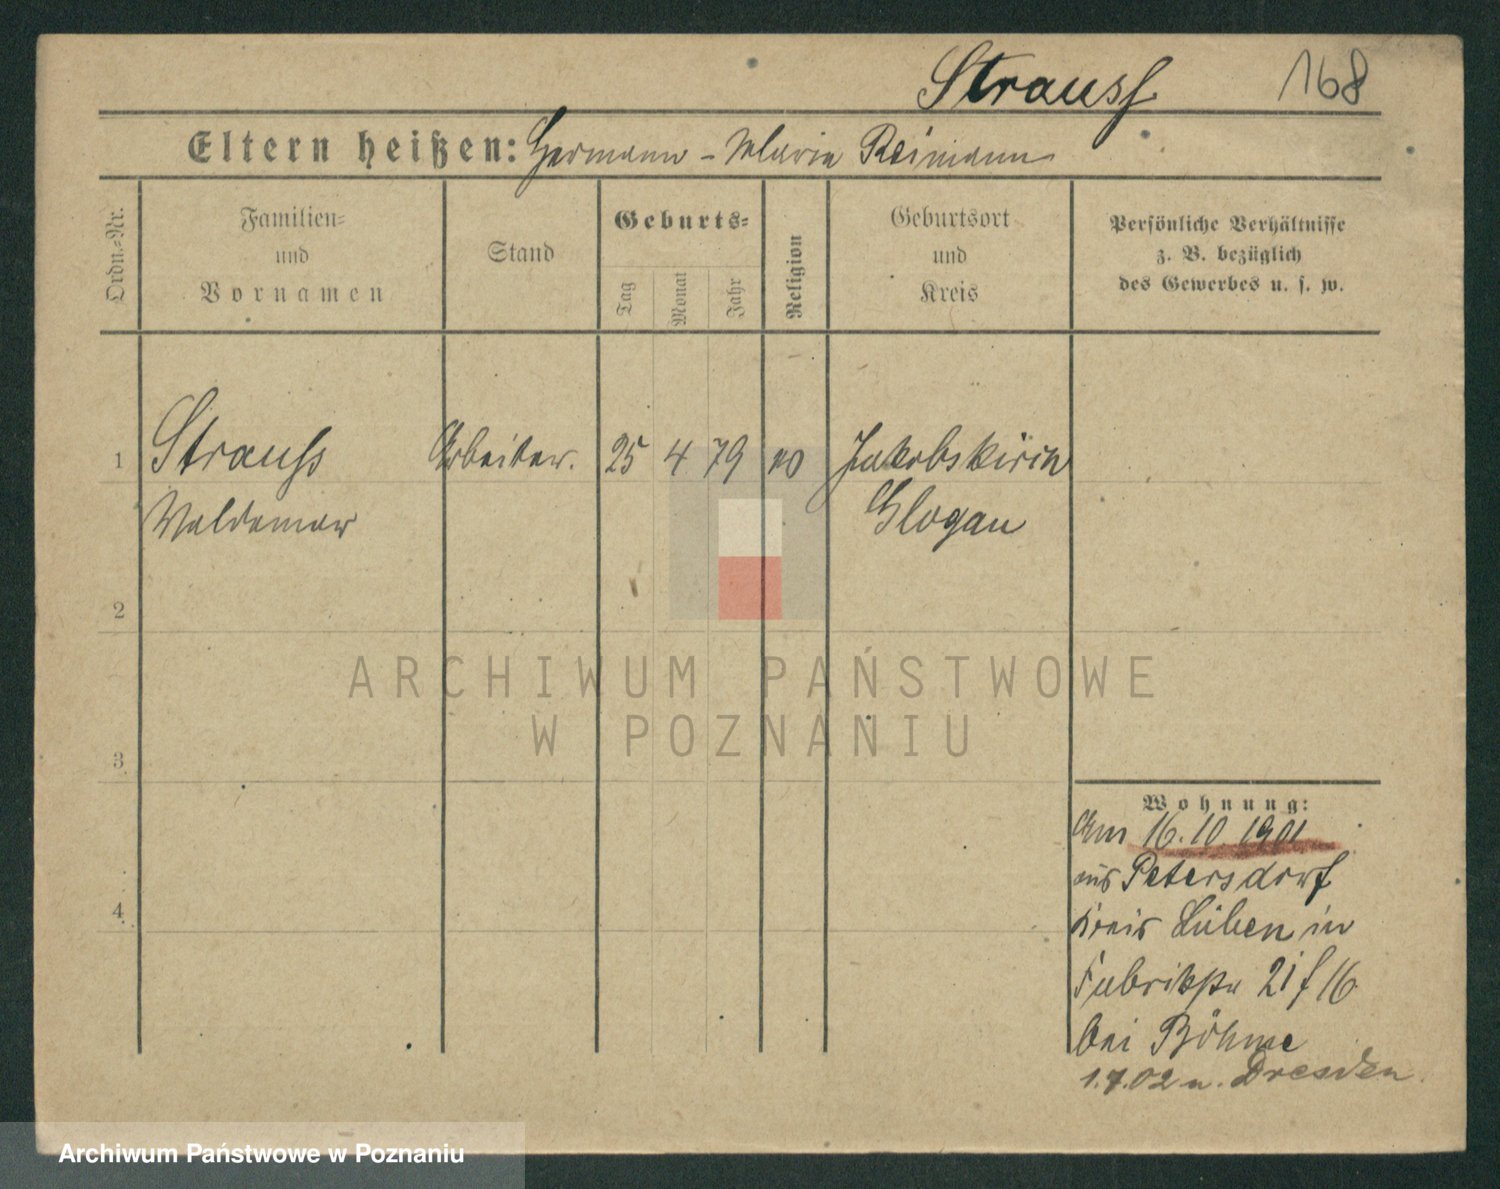 Strauss 168
Eltern heißen: Hermann - Maria Reimann
Ordn.=Nr.
Familien=
und
Vornamen
Stand
Geburts=
Tag
Monat
Jahr
Religion
Geburtsort
und
Kreis
Persönliche Verhältnisse
z. B. bezüglich
des Gewerbes u. s. w.
1 Strauss Arbeiter. 25 4 79 Jakobskirch
Waldemar Glogau
2
ARCHIWUM PAŃSTWOWE
W POZNANIU
3
Wohnung:
Am 16.10.1901
aus Petersdorf
4
Kreis Lüben in
21 f 16
bei Böhme
1.7.02 n. Dresden
Archiwum Państwowe w Poznaniu